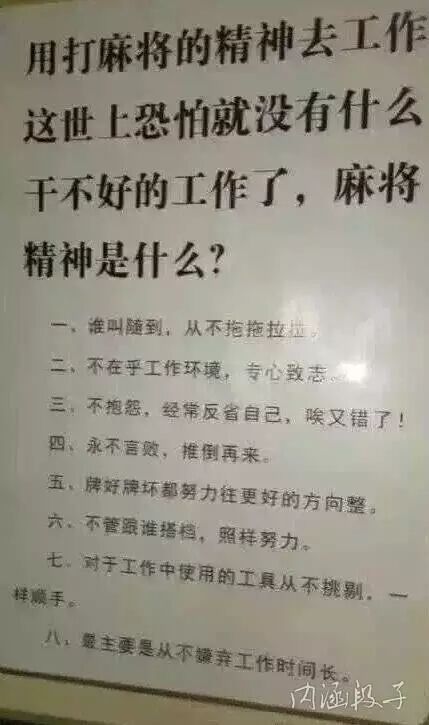 用打麻将的精神去工作
这世上恐怕就没有什么
干不好的工作了，麻将
精神是什么?
一、谁叫随到，从不拖拖拉拉。
二、不在乎工作环境，专心致志。
三、不抱怨，经常反省自己，唉又错了！
四、永不言败，推倒再来。
五、牌好牌坏都努力往更好的方向整。
六、不管跟谁搭档，照样努力。
七、对于工作中使用的工具从不挑剔，一
样顺手。
八、最主要是从不嫌弃工作时间长。
内涵段子